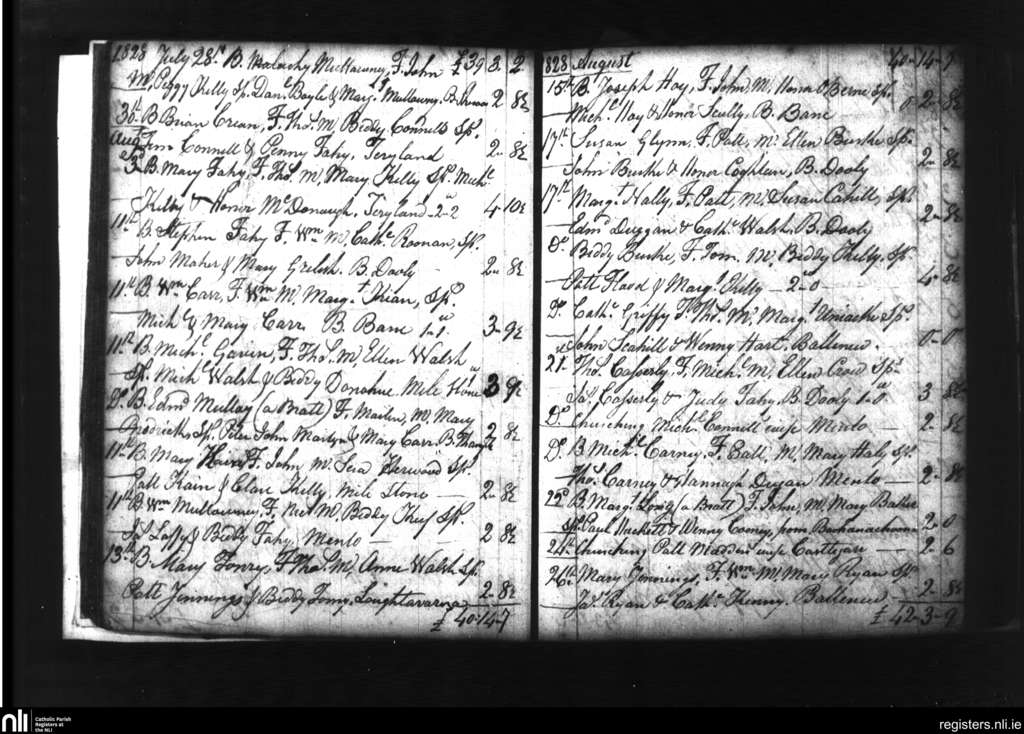 1828 July 28th B. Malachy Mullowney, F. John £39 8. 2
M, Peggy Kelly Sp. Danl Boyle & Margt Mullowny, B. 2 8½
30th B Brian Crean, F. Thos. M, Biddy Connell Sps.
Augt Connell & Penny Fahy. Teryland 2" 8½
3d B. Mary Fahy, F. Thos. M, Mary Kelly Sps. Michl.
Kelly & Honor McDonaugh, Teryland 2"2 4" 10½
11th B. Stephen Fahy F. Wm M, Cathe Roonan, Sp.
John Maher & Mary B. Dooly 2" 8½
11th B. Wm Carr, F. Wm M, Margt Kian, Sps.
Michl & Mary Carr. B. Bane 1"1" 3" 9½
11th B. Michl. Gavin, F. Thos. M, Ellen Walsh
Sps. Michl Walsh & Biddy Donohue Mile Stone 3 9½
Do B. Edmd Mullay (a Bratt) F. Martin, M, Mary
Brodrick, Sp. Peter John Martyn & Mary Carr. B. 2 8½
11th B. Mary F. John M. Sera Sps.
Patt Kain & Clare Kelly, Mile Stone 2" 8½
11th B Wm Mullowney, F. M, Biddy Sp.
Jas Laffy & Biddy Fahy. Menlo 2 8½
13th B. Mary Fonry, F. Thos. M, Anne Walsh Sp.
Patt Jennings & Biddy Loughtavarna 2" 8½
£ 40"14"7
1828 August 40"14"7
15th B Joseph Hoy, F. John, M. Honor O'Berne Sps.
Michl. Hoy & Honor Scully, B. Bane 0" 2" 8½
17th Susan Glynn, F. Patt, M, Ellen Burke Sps.
John Burke & Honor Coghlan, B. Dooly 2" 8½
17th Margt Hally, F. Patt, M, Susan Cahill, Sps.
Edm Duggan & Cathe Walsh, B. Dooly 2" 8½
Do Biddy Burke, F. Tom. M, Biddy Kelly, Sps.
Patt Hood & Margt Kelly 2"0 4" 8½
Do Cathe Griffy F. Thos. M, Margt Uniacke Sps.
John Scahill & Wenny Hart. Ballinew. 0"0
21st Thos. Casserly, F. Michl. M, Ellen Sps.
Jas. Casserly & Judy Fahy, B. Dooly 1"0" 3 8½
Do Churching Michl Connell's wife Menlo 2" 8½
Do B. Michl. Carney, F. Patt, M, Mary Haly Sps.
Thos. Carney & Hannagh Dugan Menlo 2" 8½
22d B. Margt Long (a Bratt) F. John, M, Mary Baker
Sps. Paul Hackett & Wenny Cooney, from 2" 0
24th Churching Patt Madden's wife Castlegar 2" 6
26th Mary Jennings, F. Wm M, Mary Ryan Sps.
Jas. Ryan & Cathe Kenny. Ballinew 2" 8½
£ 42"3"9
nli Catholic Parish
Registers at
the NLI
registers.nli.ie